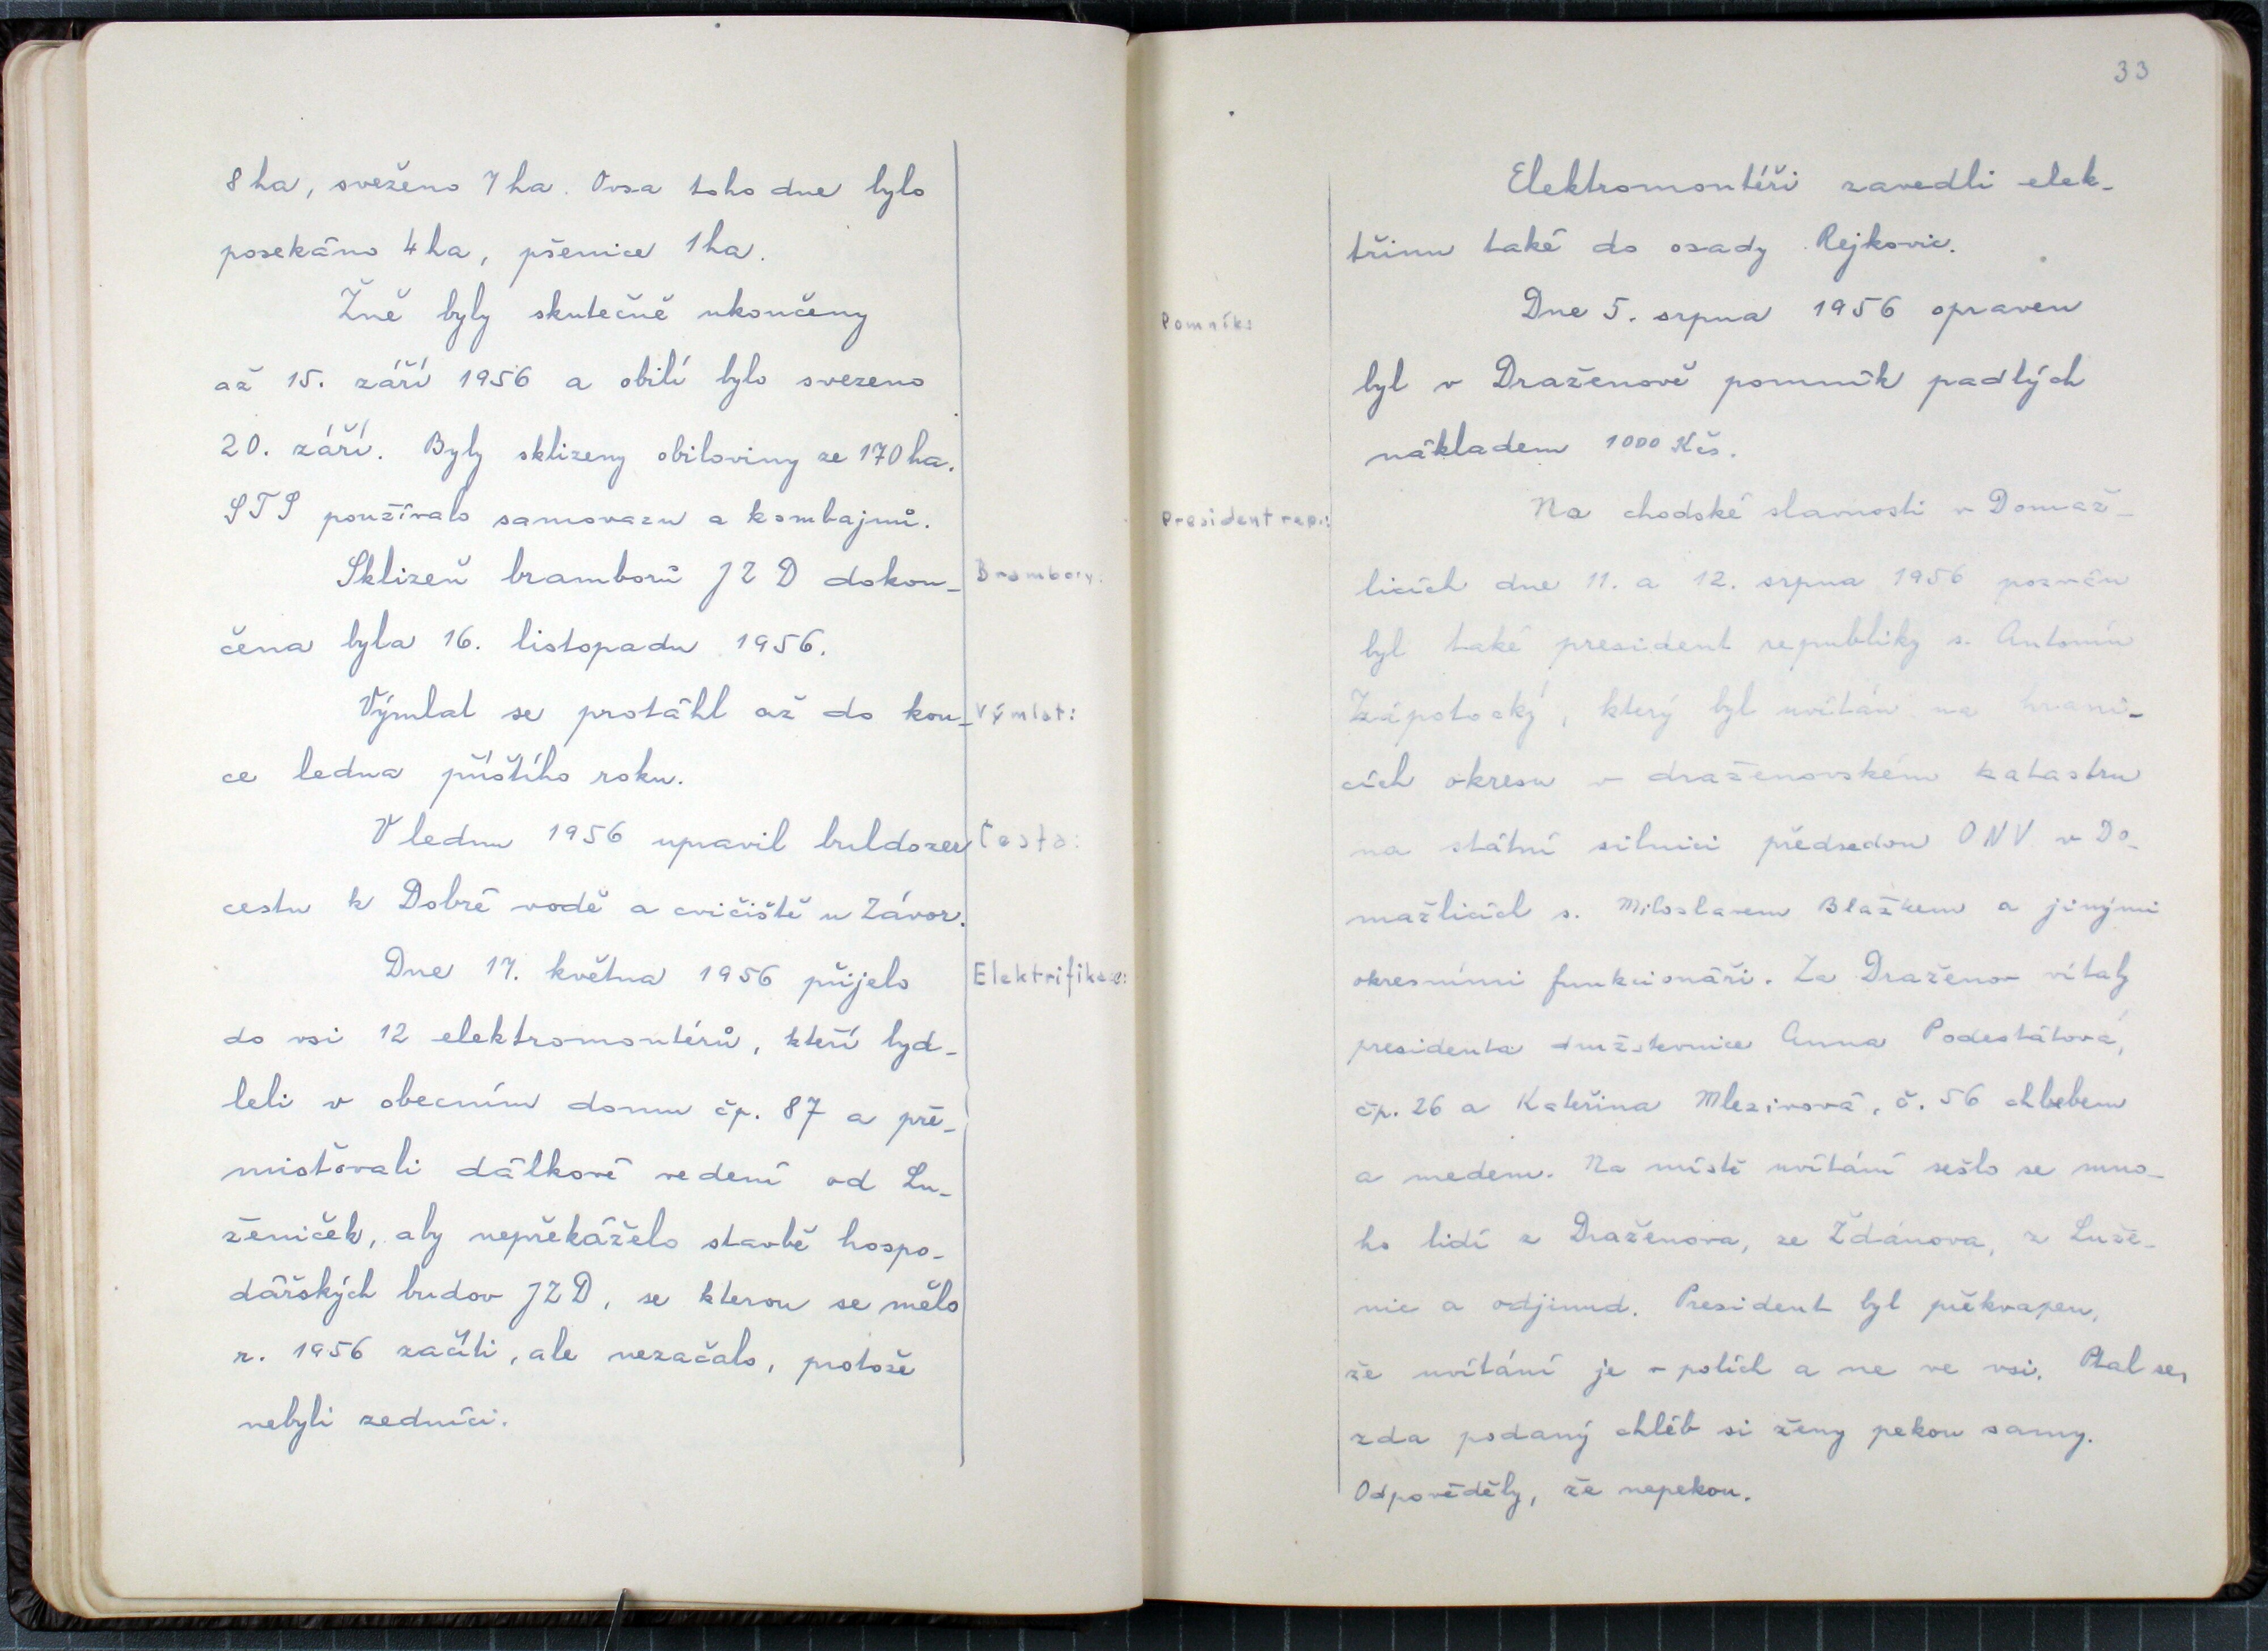 8 ha, sveženo 7 ha. Ovsa toho dne bylo
posekáno 4 ha, pšenice 1 ha.
Žně byly skutečně ukončeny
až 15. září 1956 a obilí bylo svezeno
20. září. Byly sklizeny obiloviny ze 170 ha.
STS používalo samovazu a kombajnů.
Sklizeň bramborů JZD dokon-
Brambory:
čena byla 16. listopadu 1956.
Výmlat se protáhl až do kon-
Výmlat:
ce ledna příštího roku.
V lednu 1956 upravil buldozer
Cesta:
cestu k Dobré vodě a cvičiště u Závor.
Dne 17. května 1956 přijelo
Elektrifikace:
do vsi 12 elektromontérů, kteří byd-
leli v obecním domu čp. 87 a pře-
misťovali dálkové vedení od Lu-
ženiček, aby nepřekáželo stavbě hospo-
dářských budov JZD, se kterou se mělo
r. 1956 začíti, ale nezačalo, protože
nebyli zedníci.
33
Elektromontéři zavedli elek-
třinu také do osady Rejkovic.
Pomník:
Dne 5. srpna 1956 opraven
byl v Draženově pomník padlých
nákladem 1000 Kčs.
President rep.:
Na chodské slavnosti v Domaž-
licích dne 11. a 12. srpna 1956 pozván
byl také president republiky s. Antonín
Zápotocký, který byl uvítán na hrani-
cích okresu v draženovském katastru
na státní silnici předsedou ONV v Do-
mažlicích s. Miloslavem Blažkem a jinými
okresními funkcionáři. Za Draženov vítaly
presidenta družstevnice Anna Podestátová,
čp. 26 a Kateřina Mlezivová, č. 56 chlebem
a medem. Na místě uvítání sešlo se mno-
ho lidí z Draženova, ze Ždánova, z Luže-
nic a odjinud. President byl překvapen,
že uvítání je v polích a ne ve vsi. Ptal se,
zda podaný chléb si ženy pekou samy.
Odpověděly, že nepekou.